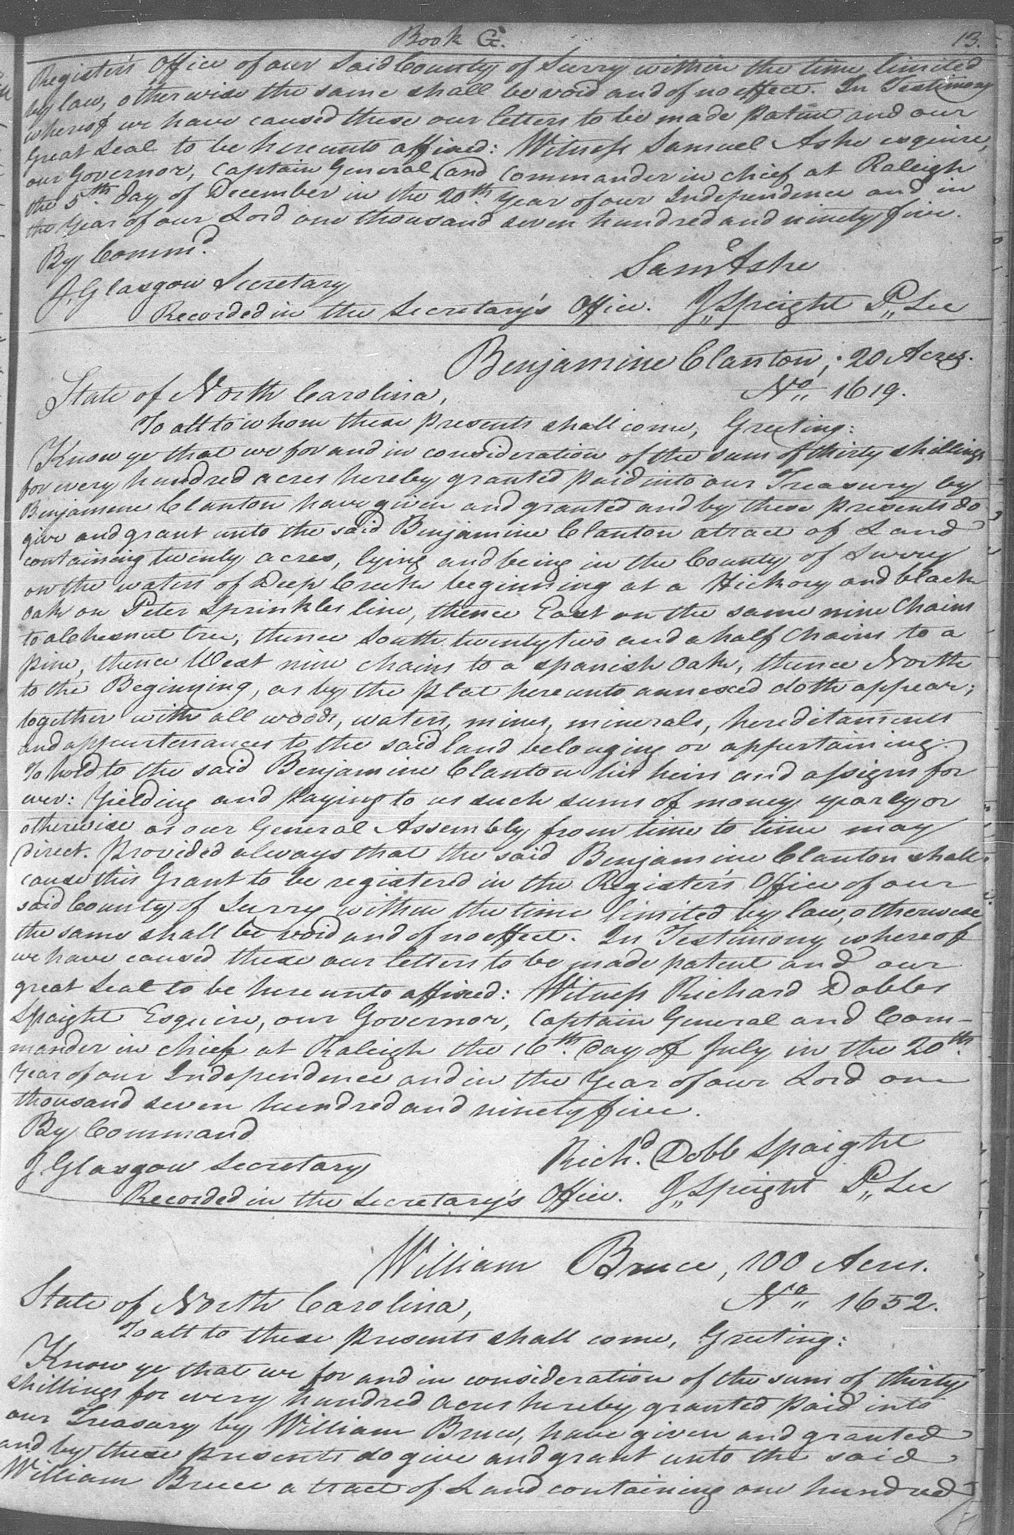 Book G. 13.
Register's Office of our Said County of Surry within the time limited
by law, otherwise the same shall be void and of no effect. In Testimony
whereof we have caused these our letters to be made patent and our
Great Seal to be hereunto affixed: Witness Samuel Ashe esquire,
our Governor, Captain General and Commander in chief at Raleigh
the 5th day of December in the 20th Year of our Independence and in
the Year of our Lord one thousand seven hundred and ninety five.
By Commd. Saml Ashe
J. Glasgow Secretary
Recorded in the Secretary's Office. J,, Speight P,, Sec
Benjamine Clanton, : 20 Acres.
State of North Carolina, No 1619.
To all to whom these presents shall come, Greeting:
Know ye that we for and in consideration of the sum of thirty shillings
for every hundred acres hereby granted paid into our Treasury by
Benjamine Clanton have given and granted and by these presents do
give and grant unto the said Benjamine Clanton a tract of Land
containing twenty acres, lying and being in the County of Surry
on the waters of Deep Creek beginning at a Hickory and black
oak on Peter Sprinkles line, thence East on the same nine Chains
to a Chesnut tree, thence South twenty two and a half Chains to a
pine, thence West nine chains to a spanish Oak, thence North
to the Beginning, as by the plat hereunto annexed doth appear;
together with all woods, waters, mines, minerals, hereditaments
and appurtenances to the said land belonging or appurtaining.
To hold to the said Benjamine Clanton his heirs and assigns for
ever: Yielding and paying to us such sums of money yearly or
otherwise as our General Assembly from time to time may
direct. Provided always that the said Benjamine Clanton shall
cause this Grant to be registered in the Register's Office of our
said County of Surry within the time limited by law, otherwise
the same shall be void and of no effect. In Testimony whereof
we have caused these our letters to be made patent and our
great Seal to be hereunto affixed: Witness Richard Dobbs
Spaight Esquire, our Governor, Captain General and Com-
mander in chief at Raleigh the 16th day of July in the 20th
Year of our Independence and in the Year of our Lord one
thousand seven hundred and ninety five.
By Command
J Glasgow Secretary Richd. Dobb Spaight
Recorded in the Secretary's Office. J,, Speight P,, Sec
William Bruce, 100 Acres.
State of North Carolina, No 1652.
To all to these presents shall come, Greeting:
Know ye that we for and in consideration of the sum of thirty
shillings for every hundred acres hereby granted paid into
our Treasury by William Bruce, have given and granted
and by these presents do give and grant unto the said
William Bruce a tract of Land containing one hundred